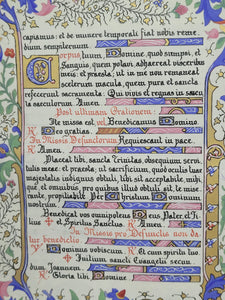 capiamus: et de munere temporali fiat nobis reme
dium sempiternum.
Corpus tuum Domine, quod sumpsi, et
Sanguis, quem potavi, adhaereat visceribus
meis: et praesta; ut in me non remaneat
scelerum macula, quem pura et sancta
refecerunt sacramenta. Qui vivis et regnas in saecula
saeculorum. Amen.
Post ultimam Orationem:
Ite missa est, vel Benedicamus Domino
R Deo gratias.
In Missis Defunctorum Requiescant in pace.
R Amen.
Placeat tibi, sancta Trinitas, obsequium servi
tutis meae: et praesta: ut sacrificium, quod oculis tuae
majestatis indignus obtuli, tibi sit acceptabile, mihi
que, et omnibus, pro quibus illud obtuli, sit, te mise
rante, propitiabile. Per Christum Dominum nos
trum. Amen.
Benedicat vos omnipotens Deus, Pater, et Fi
lius + et Spiritus Sanctus. R Amen.
In Missis pro Defunctis non da
tur benedictio.
Dominus vobiscum. R Et cum spiritu tuo
Initium sancti Evangelii secun
dum Joannem.
R Gloria tibi, Domine